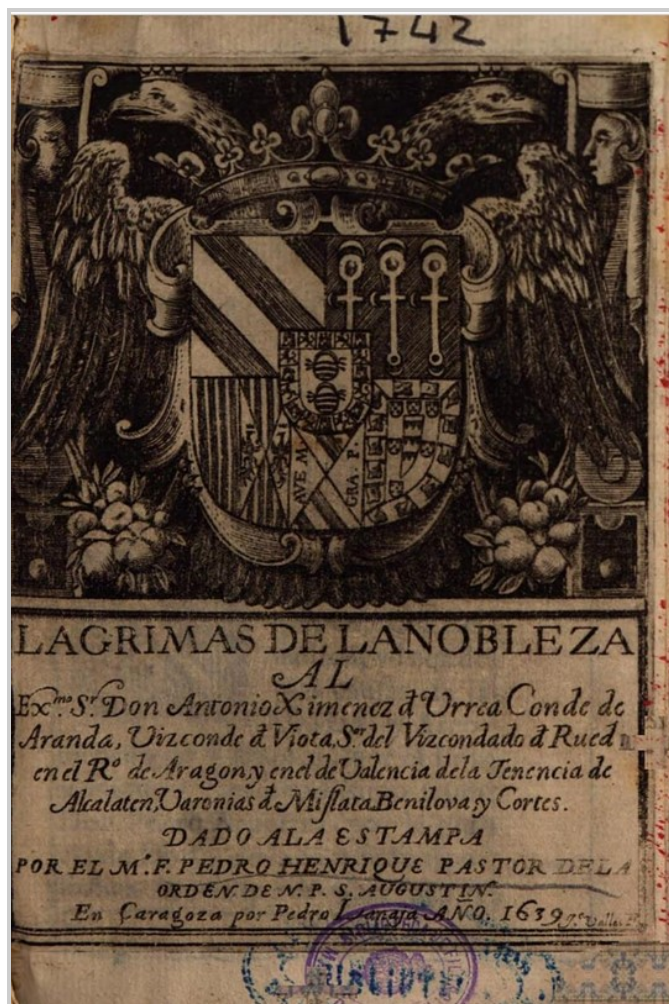 1742
AVE M.
GRA. P.
LAGRIMAS DE LA NOBLEZA
AL
Ex.mo S.r Don Antonio Ximenez đ Urrea Conde de
Aranda, Vizconde đ Viota, S.or del Vizcondado đ Rued
en el R.o de Aragon, y en el de Valencia de la Tenencia de
Alcalaten, Varonias đ Mislata, Benilova, y Cortes.
DADO A LA ESTAMPA
POR EL M.o F. PEDRO HENRIQUE PASTOR DE LA
ORDEN DE N. P. S. AUGUSTIN.
En Çaragoza por Pedro Lanaja AÑO. 1639